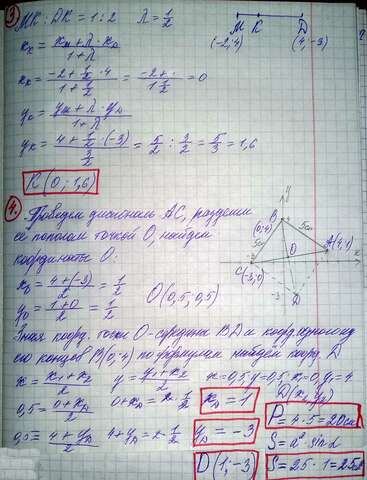 ③ MK : DK = 1 : 2   λ = 1/2
M K D
(-2;4) (4;-3)
x_K = (x_M + λ · x_D)/(1 + λ)
x_K = (-2 + 1/2 · 4)/(1 + 1/2) = 0
y_M + λ · y_D / 1 + λ
y_K = (4 + 1/2 · (-3))/(3/2) = 5/2 : 3/2 = 5/3 = 1,6
K (0; 1,6)
④ Проведем диагональ AC, разделим
её пополам точкой O, найдем
координаты O:
y
B (0;4)
5см
5см
A(4;1)
O
C(-3;0)
-3
D
x_0 = (4 + (-3))/2 = 1/2
y_0 = (1 + 0)/2 = 1/2
O(0,5; 0,5)
Зная коорд. точки O-середина BD и коорд одного из
его концов B(0;4) по формулам найдем коорд. D
x = (x_1 + x_2)/2   y = (y_1 + y_2)/2   x=0,5 y=0,5 x_1=0, y_1=4
0,5 = (0 + x_D)/2   0 + x_D = 2 · 1/2   x_D = 1
0,5 = (4 + y_D)/2   4 + y_D = 2 · 1/2   y_D = -3
D (1; -3)
P = 4 · 5 = 20см
S = a² · sin α
S = 25 · 1 = 25